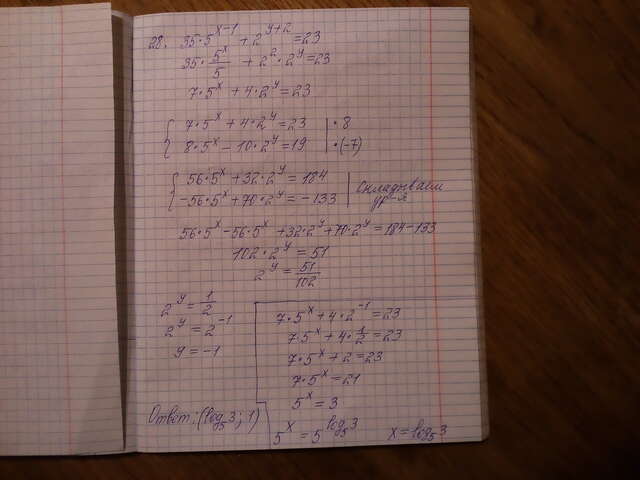 28. 35·5^(x-1) + 2^(y+2) = 23
35· 5^x/5 + 2^2 · 2^y = 23
7·5^x + 4·2^y = 23
{ 7·5^x + 4·2^y = 23 | ·8
{ 8·5^x - 10·2^y = 19 | ·(-7)
{ 56·5^x + 32·2^y = 184 | складываем
{ -56·5^x + 70·2^y = -133 | ур-я
56·5^x - 56·5^x + 32·2^y + 70·2^y = 184-133
102·2^y = 51
2^y = 51/102
2^y = 1/2
2^y = 2^(-1)
y = -1
7·5^x + 4·2^(-1) = 23
7·5^x + 4·1/2 = 23
7·5^x + 2 = 23
7·5^x = 21
5^x = 3
5^x = 5^(log_5 3) x = log_5 3
Ответ: (log_5 3; 1)